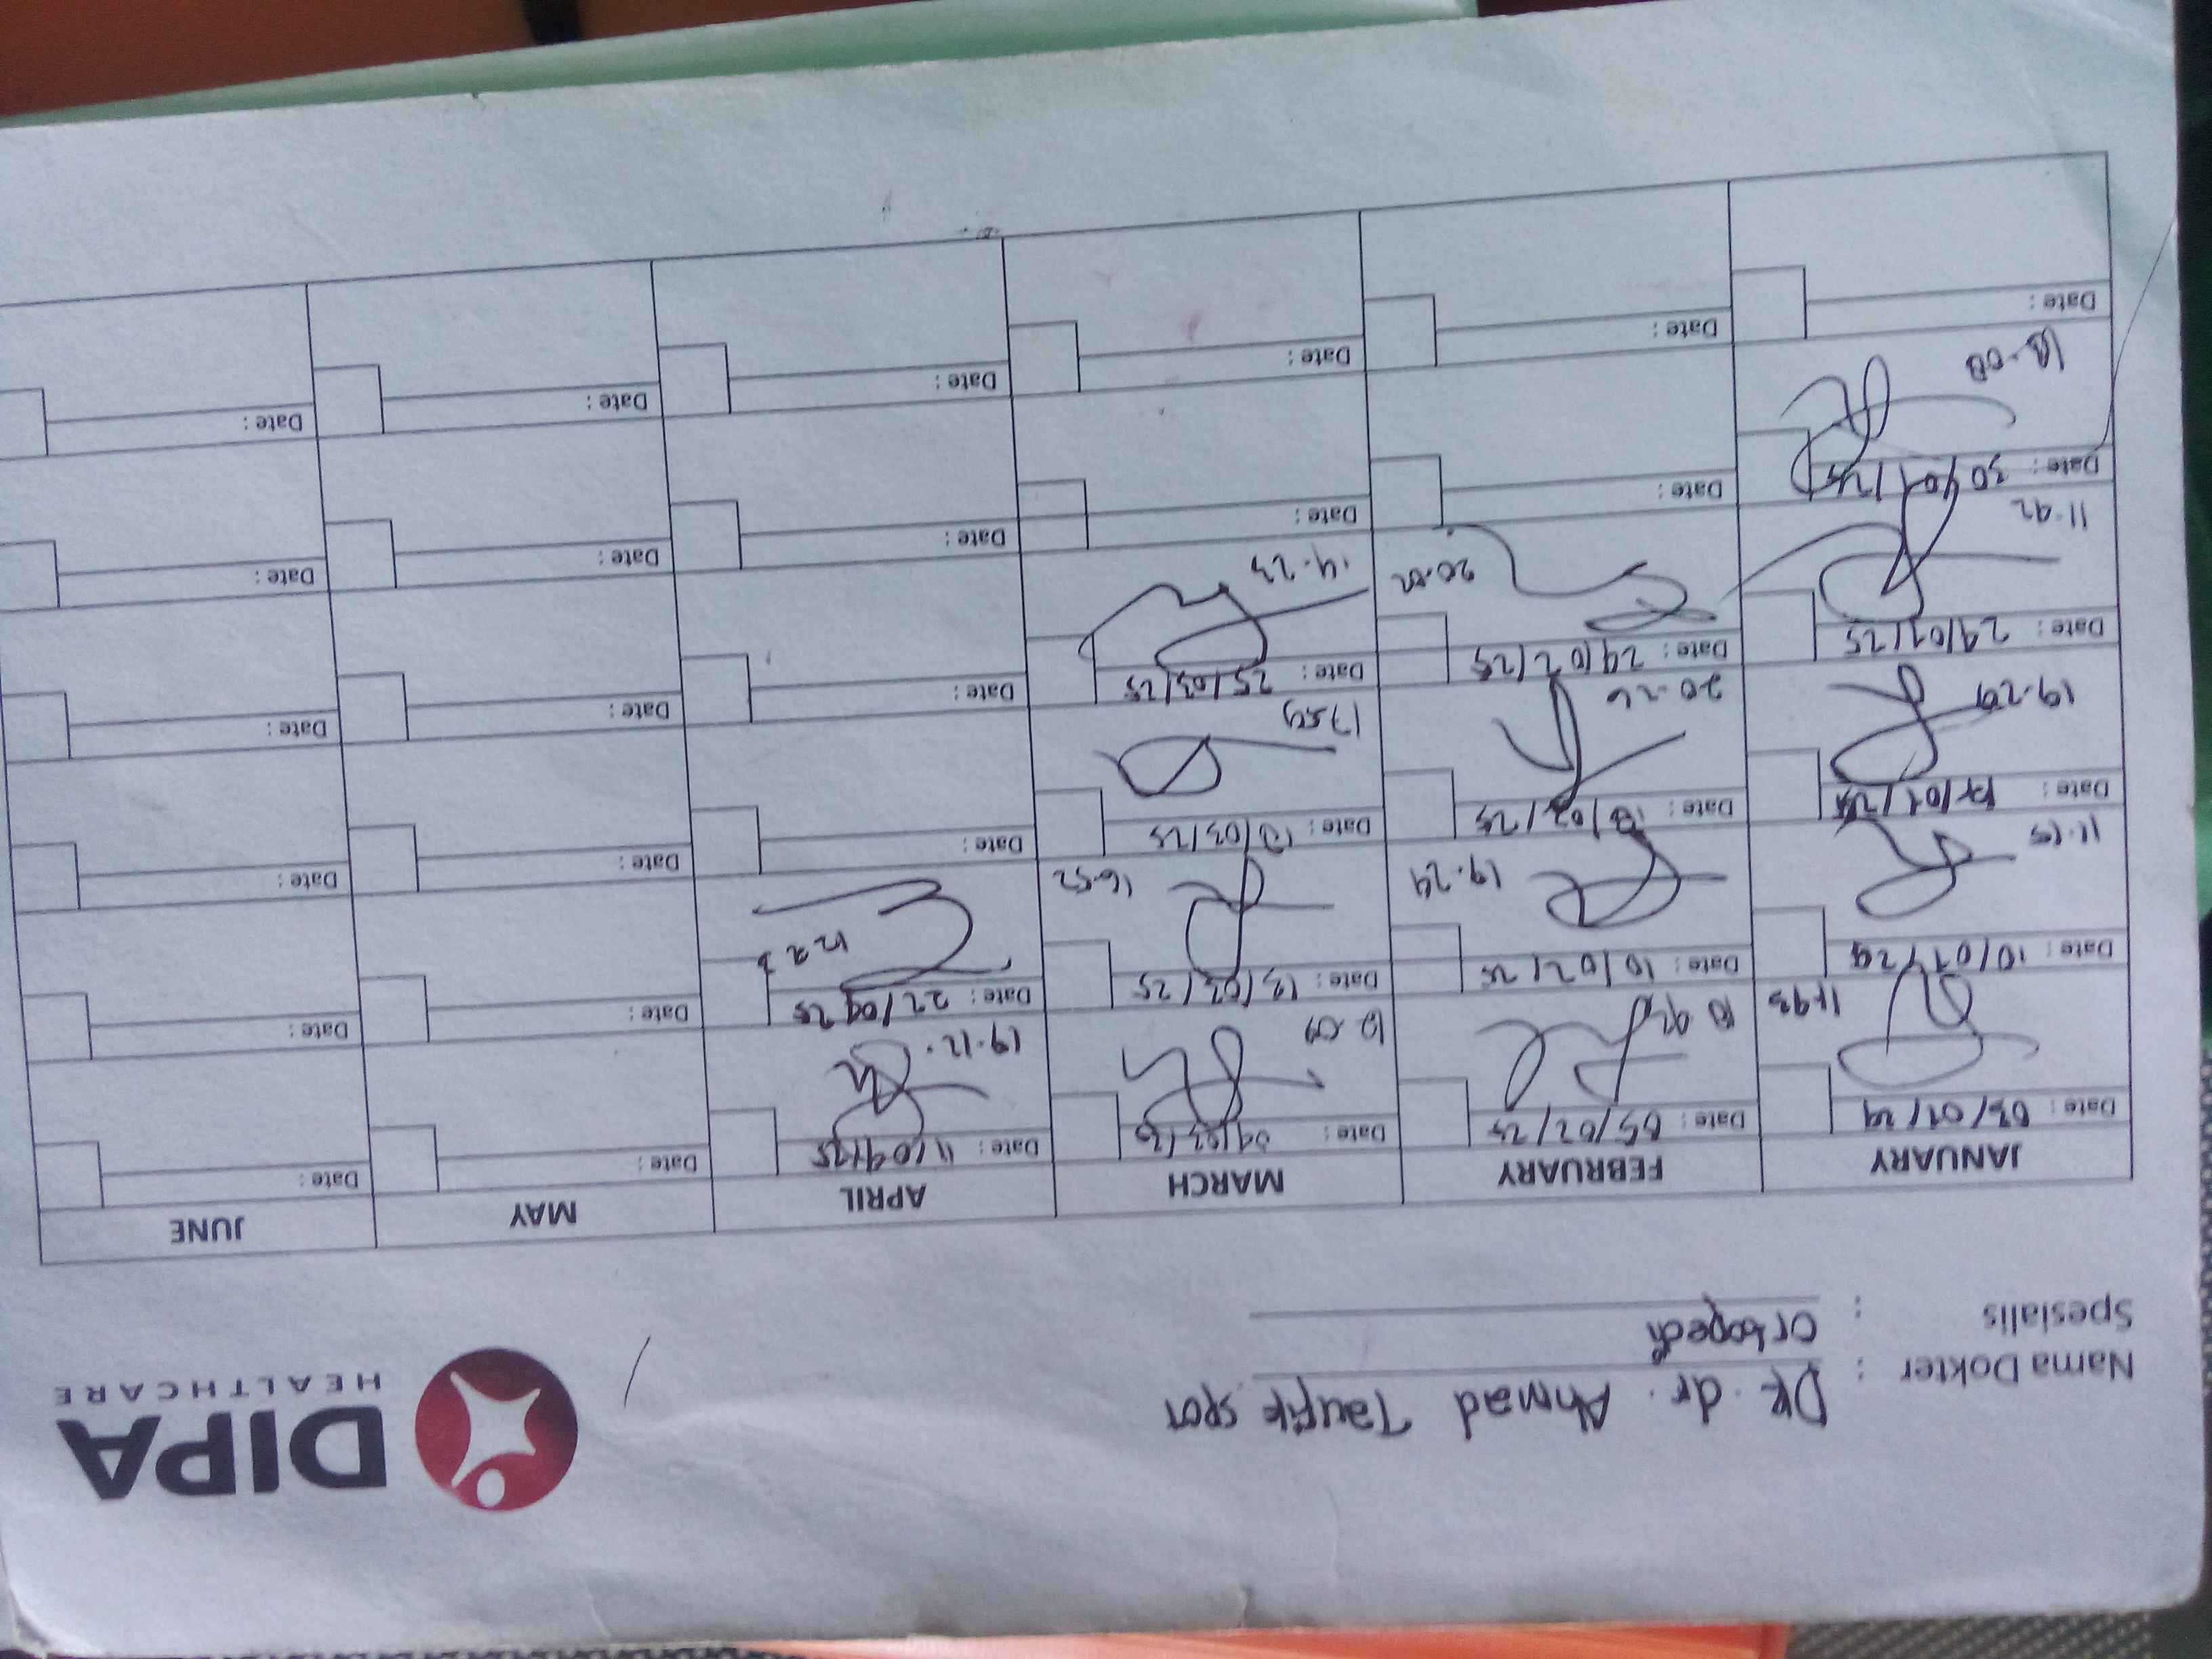 DIPA
HEALTHCARE
Nama Dokter : DR. dr. Ahmad Taufik SPOT
Spesialis : Ortopedi
JANUARY FEBRUARY MARCH APRIL MAY JUNE
Date : 03/01/24 Date : 05/02/25 Date : Date : 11/04/25 Date : Date :
11.43 19.12.
Date : 10/01/24 Date : 10/02/25 Date : 13/03/25 Date : 22/04/25 Date : Date :
19.24 16.52
Date : Date : 18/02/25 Date : 18/03/25 Date : Date : Date :
20.26 17.59
Date : 24/01/25 Date : 24/02/25 Date : 25/03/25 Date : Date : Date :
11.42 14.23
Date : 30/01/25 Date : Date : Date : Date : Date :
Date : Date : Date : Date : Date : Date :